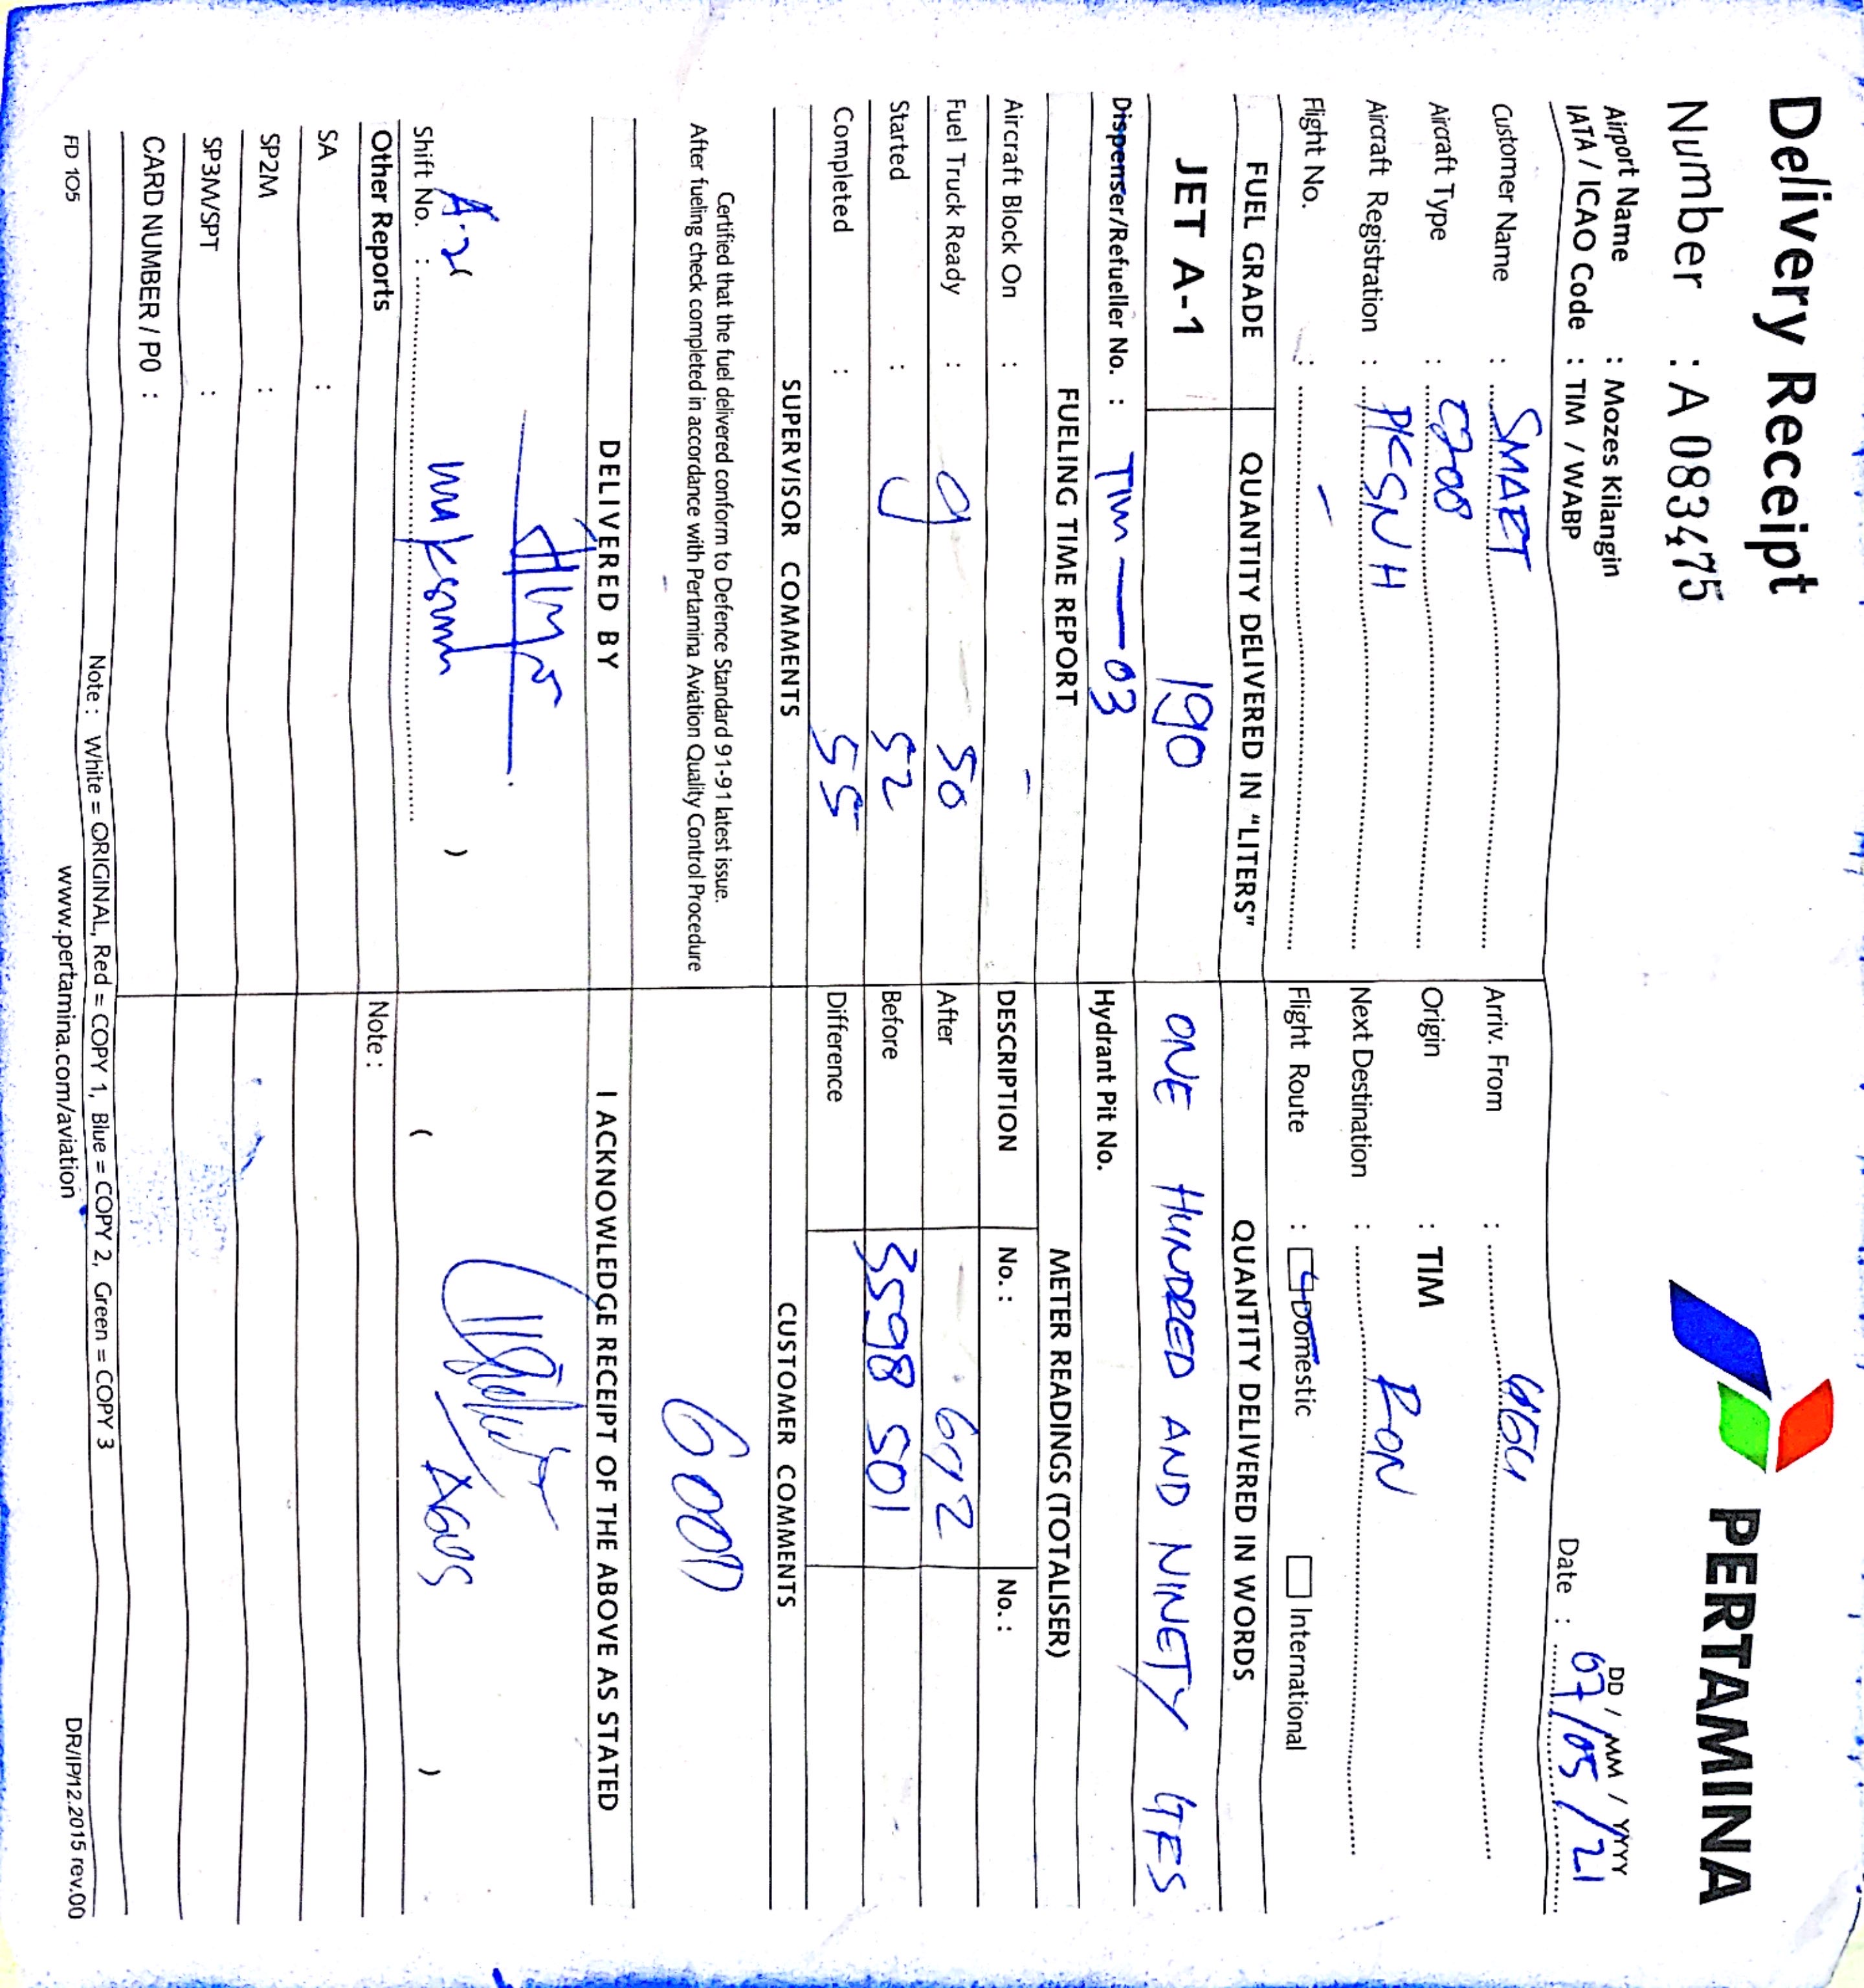 Delivery Receipt
PERTAMINA
Number : A 083475
Airport Name : Mozes Kilangin
IATA / ICAO Code : TIM / WABP
DD / MM / YYYY
Date : 07/05/21
Customer Name : SMART
Arriv. From :
Aircraft Type : C208
Origin : TIM
Aircraft Registration : PKSNH
Next Destination : RON
Flight No. : -
Flight Route : Domestic International
FUEL GRADE QUANTITY DELIVERED IN "LITERS" QUANTITY DELIVERED IN WORDS
JET A-1 190 ONE HUNDRED AND NINETY LTRS
Dispenser/Refueller No. : TIM — 03 Hydrant Pit No.
FUELING TIME REPORT METER READINGS (TOTALISER)
Aircraft Block On : - DESCRIPTION No. : No. :
Fuel Truck Ready : 9 50 After
Started : 52 Before 3598 501
Completed : 55 Difference
SUPERVISOR COMMENTS CUSTOMER COMMENTS
Certified that the fuel delivered conform to Defence Standard 91-91 latest issue.
After fueling check completed in accordance with Pertamina Aviation Quality Control Procedure
DELIVERED BY I ACKNOWLEDGE RECEIPT OF THE ABOVE AS STATED
( AGUS )
Shift No. : )
Other Reports Note :
SA :
SP2M :
SP3M/SPT :
CARD NUMBER / PO :
Note : White = ORIGINAL, Red = COPY 1, Blue = COPY 2, Green = COPY 3
FD 105 www.pertamina.com/aviation DR/IP/12.2015 rev.00